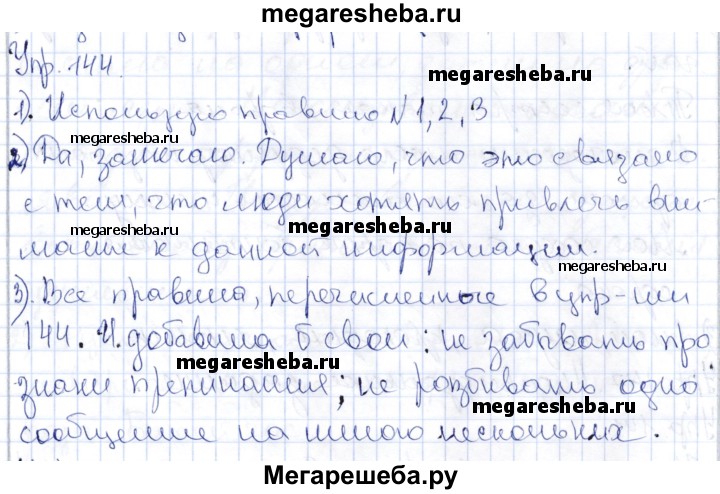 megaresheba.ru
Упр. 144.
megaresheba.ru
1). Использую правило №1, 2, 3
megaresheba.ru
2) Да, замечаю. Думаю, что это связано
с тем, что люди хотять привлечь вни-
megaresheba.ru
megaresheba.ru
мание к данной информации.
megaresheba.ru
3). Все правила, перечисленные в упр-нии
144. И добавила б свои: не забывать про
megaresheba.ru
знаки препинания; не розбивать одно
megaresheba.ru
сообщение на много нескольких.
Мегарешеба.ру